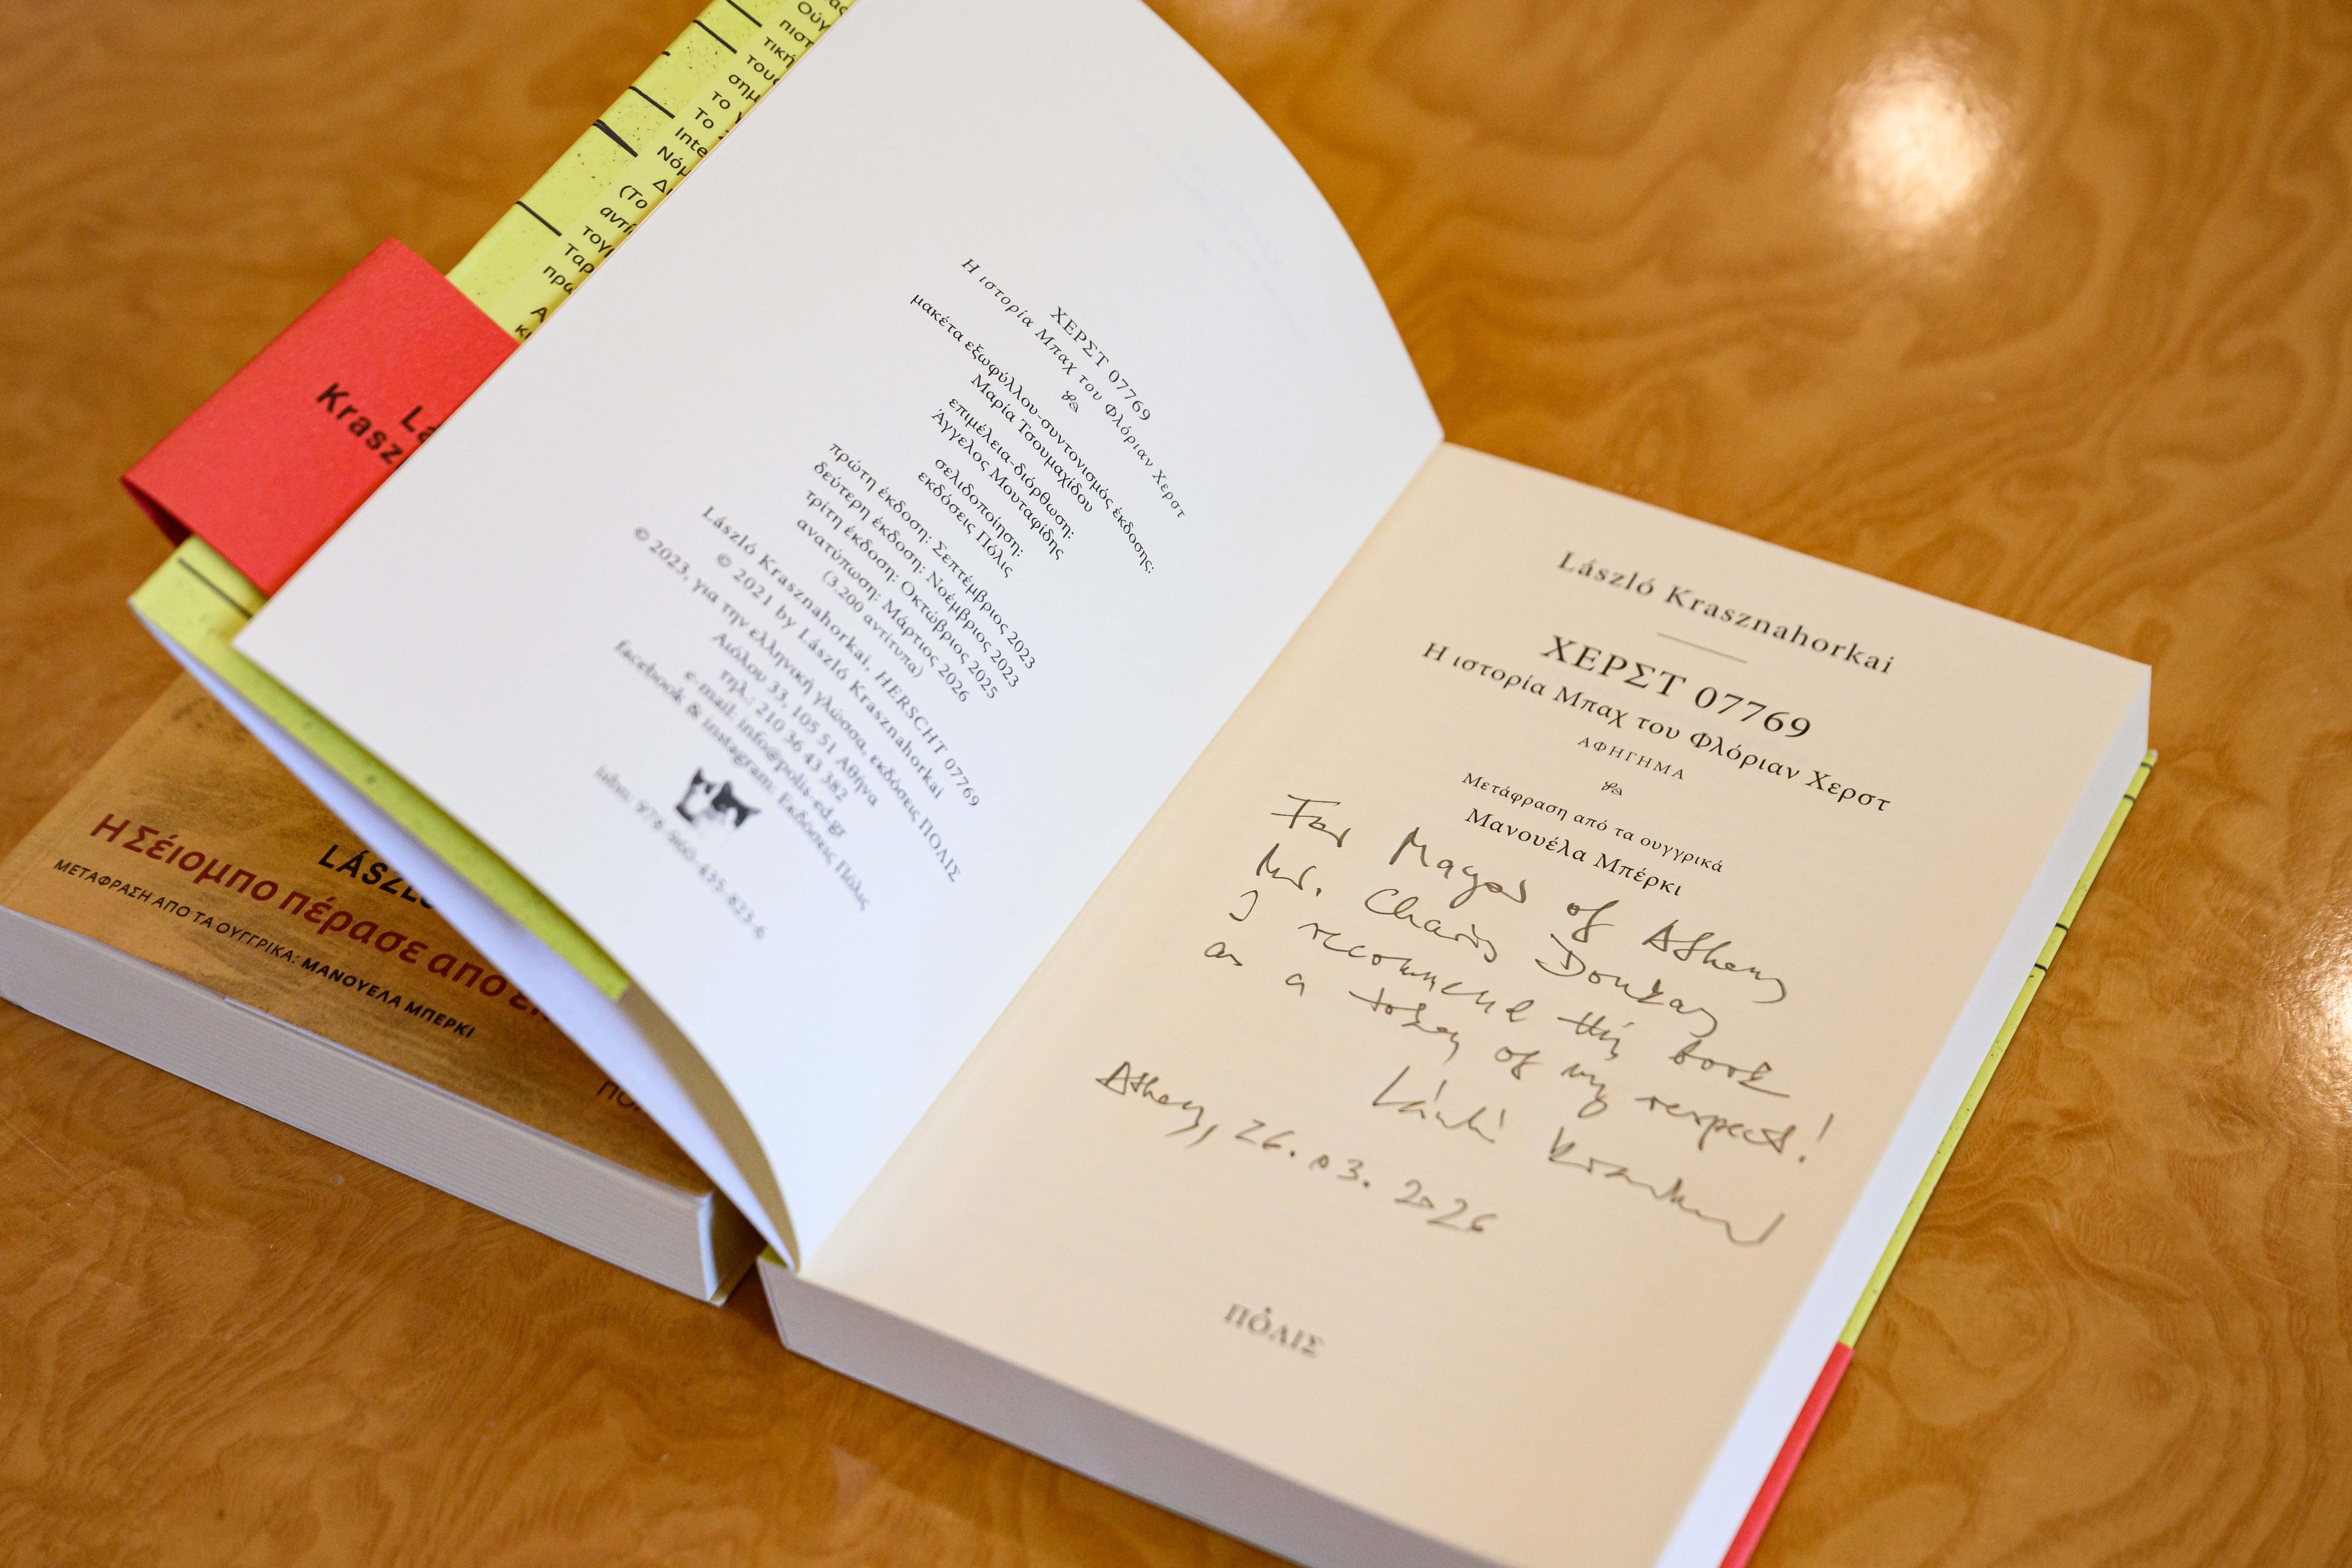 Ούγ
πιστ
τική
τους
σημ
το
Το
Inte
Νόμ
(Το
αντί
Ταρ
πρω
Krasz
ΧΕΡΣΤ 07769
Η ιστορία Μπαχ του Φλόριαν Χερστ
μακέτα εξωφύλλου-συντονισμός έκδοσης:
Μαρία Τσουμαχίδου
επιμέλεια-διόρθωση:
Άγγελος Μουταφίδης
σελιδοποίηση:
εκδόσεις Πόλις
πρώτη έκδοση: Σεπτέμβριος 2023
δεύτερη έκδοση: Νοέμβριος 2023
τρίτη έκδοση: Οκτώβριος 2025
ανατύπωση: Μάρτιος 2026
(3.200 αντίτυπα)
László Krasznahorkai, HERSCHT 07769
© 2021 by László Krasznahorkai
© 2023, για την ελληνική γλώσσα, εκδόσεις ΠΟΛΙΣ
Αιόλου 33, 105 51 Αθήνα
τηλ.: 210 36 43 382
e-mail: info@polis-ed.gr
facebook & instagram: Εκδόσεις Πόλις
isbn: 978-960-435-823-6
LÁSZLÓ
Η Σέιομπο πέρασε από
ΜΕΤΑΦΡΑΣΗ ΑΠΟ ΤΑ ΟΥΓΓΡΙΚΑ: ΜΑΝΟΥΕΛΑ ΜΠΕΡΚΙ
László Krasznahorkai
ΧΕΡΣΤ 07769
Η ιστορία Μπαχ του Φλόριαν Χερστ
ΑΦΗΓΗΜΑ
Μετάφραση από τα ουγγρικά
Μανουέλα Μπέρκι
For Mayor of Athens
Mr. Charis Doukas
I recommend this book
as a token of my respect!
László Krasznahorkai
Athens, 26. 03. 2026
ΠΟΛΙΣ